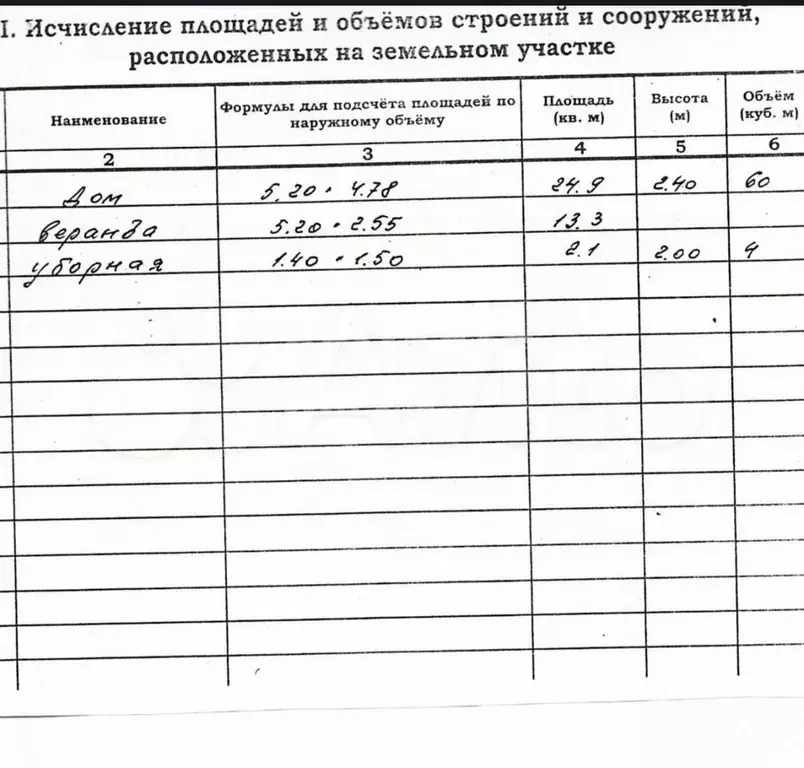 I. Исчисление площадей и объёмов строений и сооружений,
расположенных на земельном участке
Наименование Формулы для подсчёта площадей по наружному объёму Площадь (кв. м) Высота (м) Объём (куб. м)
2 3 4 5 6
Дом 5.20 · 4.78 24.9 2.40 60
веранда 5.20 · 2.55 13.3
уборная 1.40 · 1.50 2.1 2.00 4